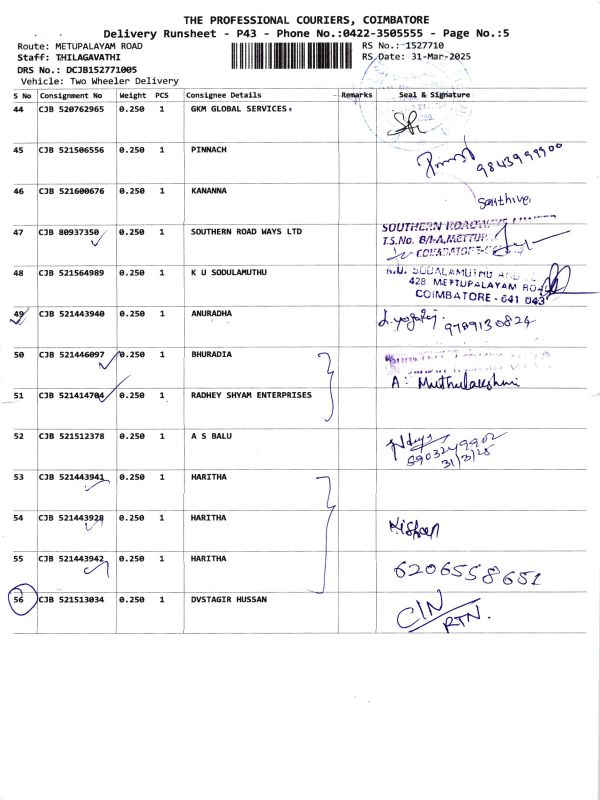 THE PROFESSIONAL COURIERS, COIMBATORE
Delivery Runsheet - P43 - Phone No.:0422-3505555 - Page No.:5
Route: METUPALAYAM ROAD RS No.: 1527710
Staff: THILAGAVATHI RS Date: 31-Mar-2025
DRS No.: DCJB152771005
Vehicle: Two Wheeler Delivery
S No Consignment No Weight PCS Consignee Details Remarks Seal & Signature
44 CJB 520762965 0.250 1 GKM GLOBAL SERVICES.
45 CJB 521506556 0.250 1 PINNACH 9843999900
46 CJB 521600676 0.250 1 KANANNA
47 CJB 80937350 0.250 1 SOUTHERN ROAD WAYS LTD SOUTHERN ROADWAYS LIMITED
T.S.No. 8/1-A, METTUP
COIMBATORE
48 CJB 521564989 0.250 1 K U SODULAMUTHU K.U. SODALAMUTHU AND
428 METTUPALAYAM ROAD
COIMBATORE - 641 043
49 CJB 521443940 0.250 1 ANURADHA 9789130824
50 CJB 521446097 0.250 1 BHURADIA
A. Muthulakshmi
51 CJB 521414704 0.250 1 RADHEY SHYAM ENTERPRISES
52 CJB 521512378 0.250 1 A S BALU
5903249902
31/3/25
53 CJB 521443941 0.250 1 HARITHA
54 CJB 521443928 0.250 1 HARITHA
55 CJB 521443942 0.250 1 HARITHA 6206558651
56 CJB 521513034 0.250 1 DVSTAGIR HUSSAN CIN
RTN.